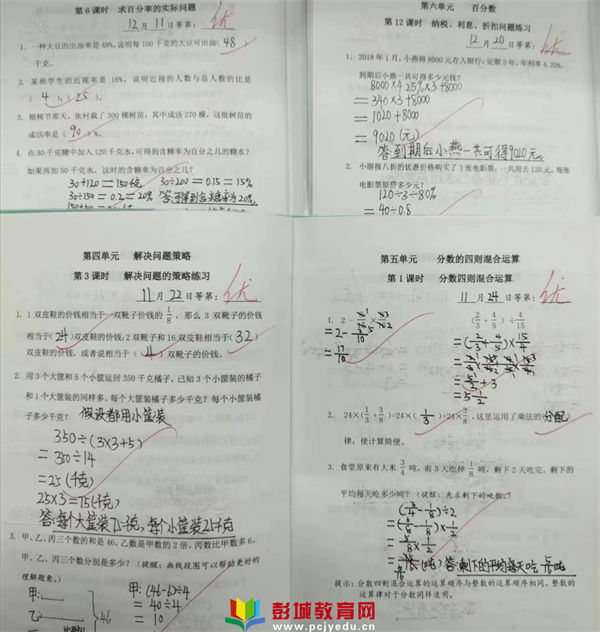 第6课时 求百分率的实际问题
12月11日等第: 优
1. 一种大豆的出油率是48%,说明每100千克的大豆可出油(48)
千克。
2. 某班学生的近视率是16%,说明近视的人数与总人数的比是
(4):(25)。
3. 植树节那天,张村栽了300棵树苗,其中成活270棵,这批树苗的
成活率是(90)%。
4. 在30千克糖中加入120千克水,可得到含糖率为百分之几的糖水?
如果再加50千克水,这时的含糖率为百分之几?
30+120=150千克 30÷200=0.15=15%
30÷150=0.2=20%
第六单元 百分数
第12课时 纳税、利息、折扣问题练习
12月20日等第: 优
1. 2018年1月,小燕将8000元存入银行,定期3年,年利率4.25%,
到期后小燕一共可得多少元钱?
8000×4.25%×3+8000
=340×3+8000
=1020+8000
=9020(元)
答:到期后小燕一共可得9020元。
2. 小丽按八折的优惠价格购买了3张电影票,一共用去120元,每张
电影票原价多少元?
120÷3÷80%
=40÷0.8
第四单元 解决问题策略
第3课时 解决问题的策略练习
11月22日等第: 优
1. 1双皮鞋的价钱相当于一双靴子价钱的1/8,那么3双靴子的价钱
相当于(24)双皮鞋的价钱;2双靴子和16双皮鞋相当于(32)
双皮鞋的价钱,或者说相当于(4)双靴子的价钱。
2. 用3个大筐和5个小筐运回350千克橘子,已知3个小筐装的橘子
和1个大筐装的同样多,每个大筐装橘子多少千克?每个小筐装橘
子多少千克? 假设都用小筐装
350÷(3×3+5)
=350÷14
=25(千克)
25×3=75(千克)
答:每个大筐装75千克,每个小筐装25千克
3. 甲、乙、丙三个数的和是46,乙数是甲数的2倍,丙数比甲数多6,
甲、乙、丙三个数分别是多少?(提醒:画线段图可以帮助更好的
理解题意。)
甲:(46-6)÷4
=40÷4
=10
甲
乙
46
第五单元 分数的四则混合运算
第1课时 分数四则混合运算
11月24日等第: 优
1.
(2/3+4/5)÷4/15
=(2/3+4/5)×15/4
=5/2+3
=5 1/2
=17/10
2. 24×(1/3+3/8)=24×(1/3)+24×3/8,这里运用了乘法的(分配)
律,使计算简便。
3. 食堂原来有大米3/4吨,前3天吃掉1/8吨,剩下2天吃完。剩下的
平均每天吃多少吨?(提醒:先求剩下的吨数。)
(3/4-1/8)÷2
=(6/8-1/8)×1/2
=5/8×1/2
提示:分数四则混合运算的运算顺序与整数的运算顺序相同。整数的
运算律对于分数同样适用。
彭城教育网
www.pcjyedu.cn